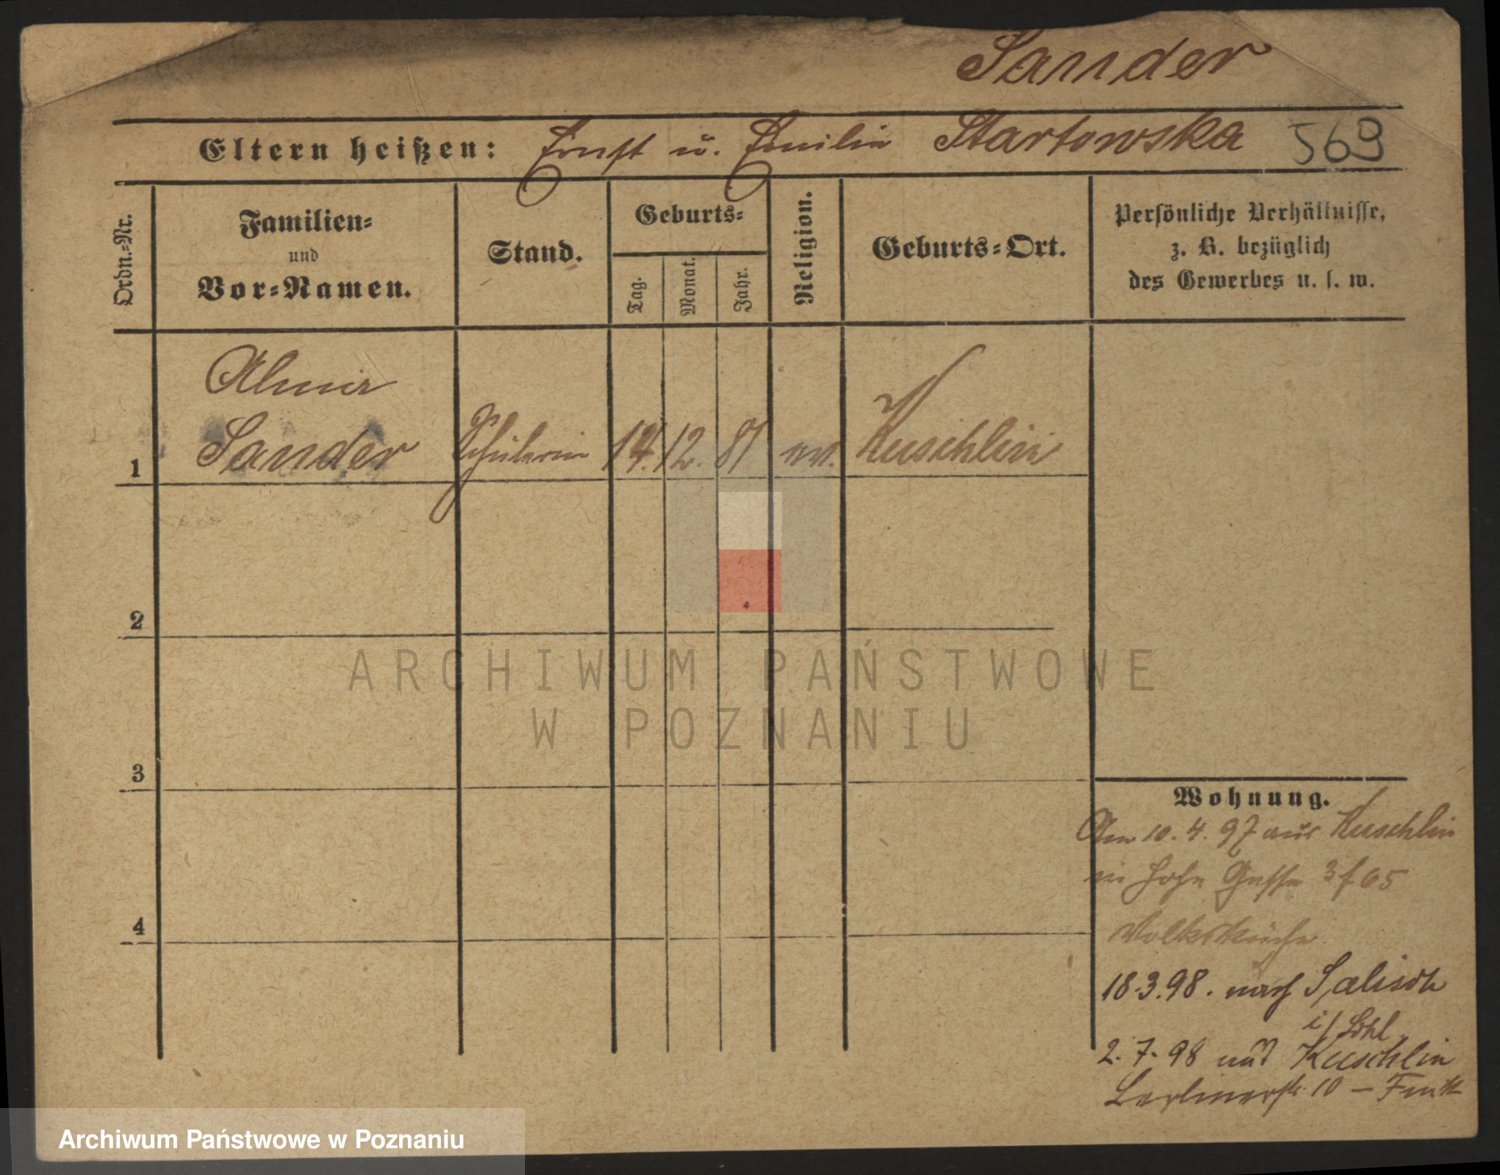 Sander
Eltern heißen: Ernst u. Emilie Startowska 569
Ordn.-Nr.
Familien-
und
Vor-Namen.
Stand.
Geburts-
Tag.
Monat.
Jahr.
Religion.
Geburts-Ort.
Persönliche Verhältnisse,
z. B. bezüglich
des Gewerbes u. s. w.
Alma
1 Sander Schülerin 14. 12. 81 ev. Kuschlin
2
3
4
Wohnung.
Am 10. 4. 97 aus Kuschlin
in Hohe Gasse 3 f 65
Volksküche
18.3.98. nach Salisch
i/
2.7.98 aus Kuschlin
Berlinerstr 10 –
ARCHIWUM PAŃSTWOWE
W POZNANIU
Archiwum Państwowe w Poznaniu